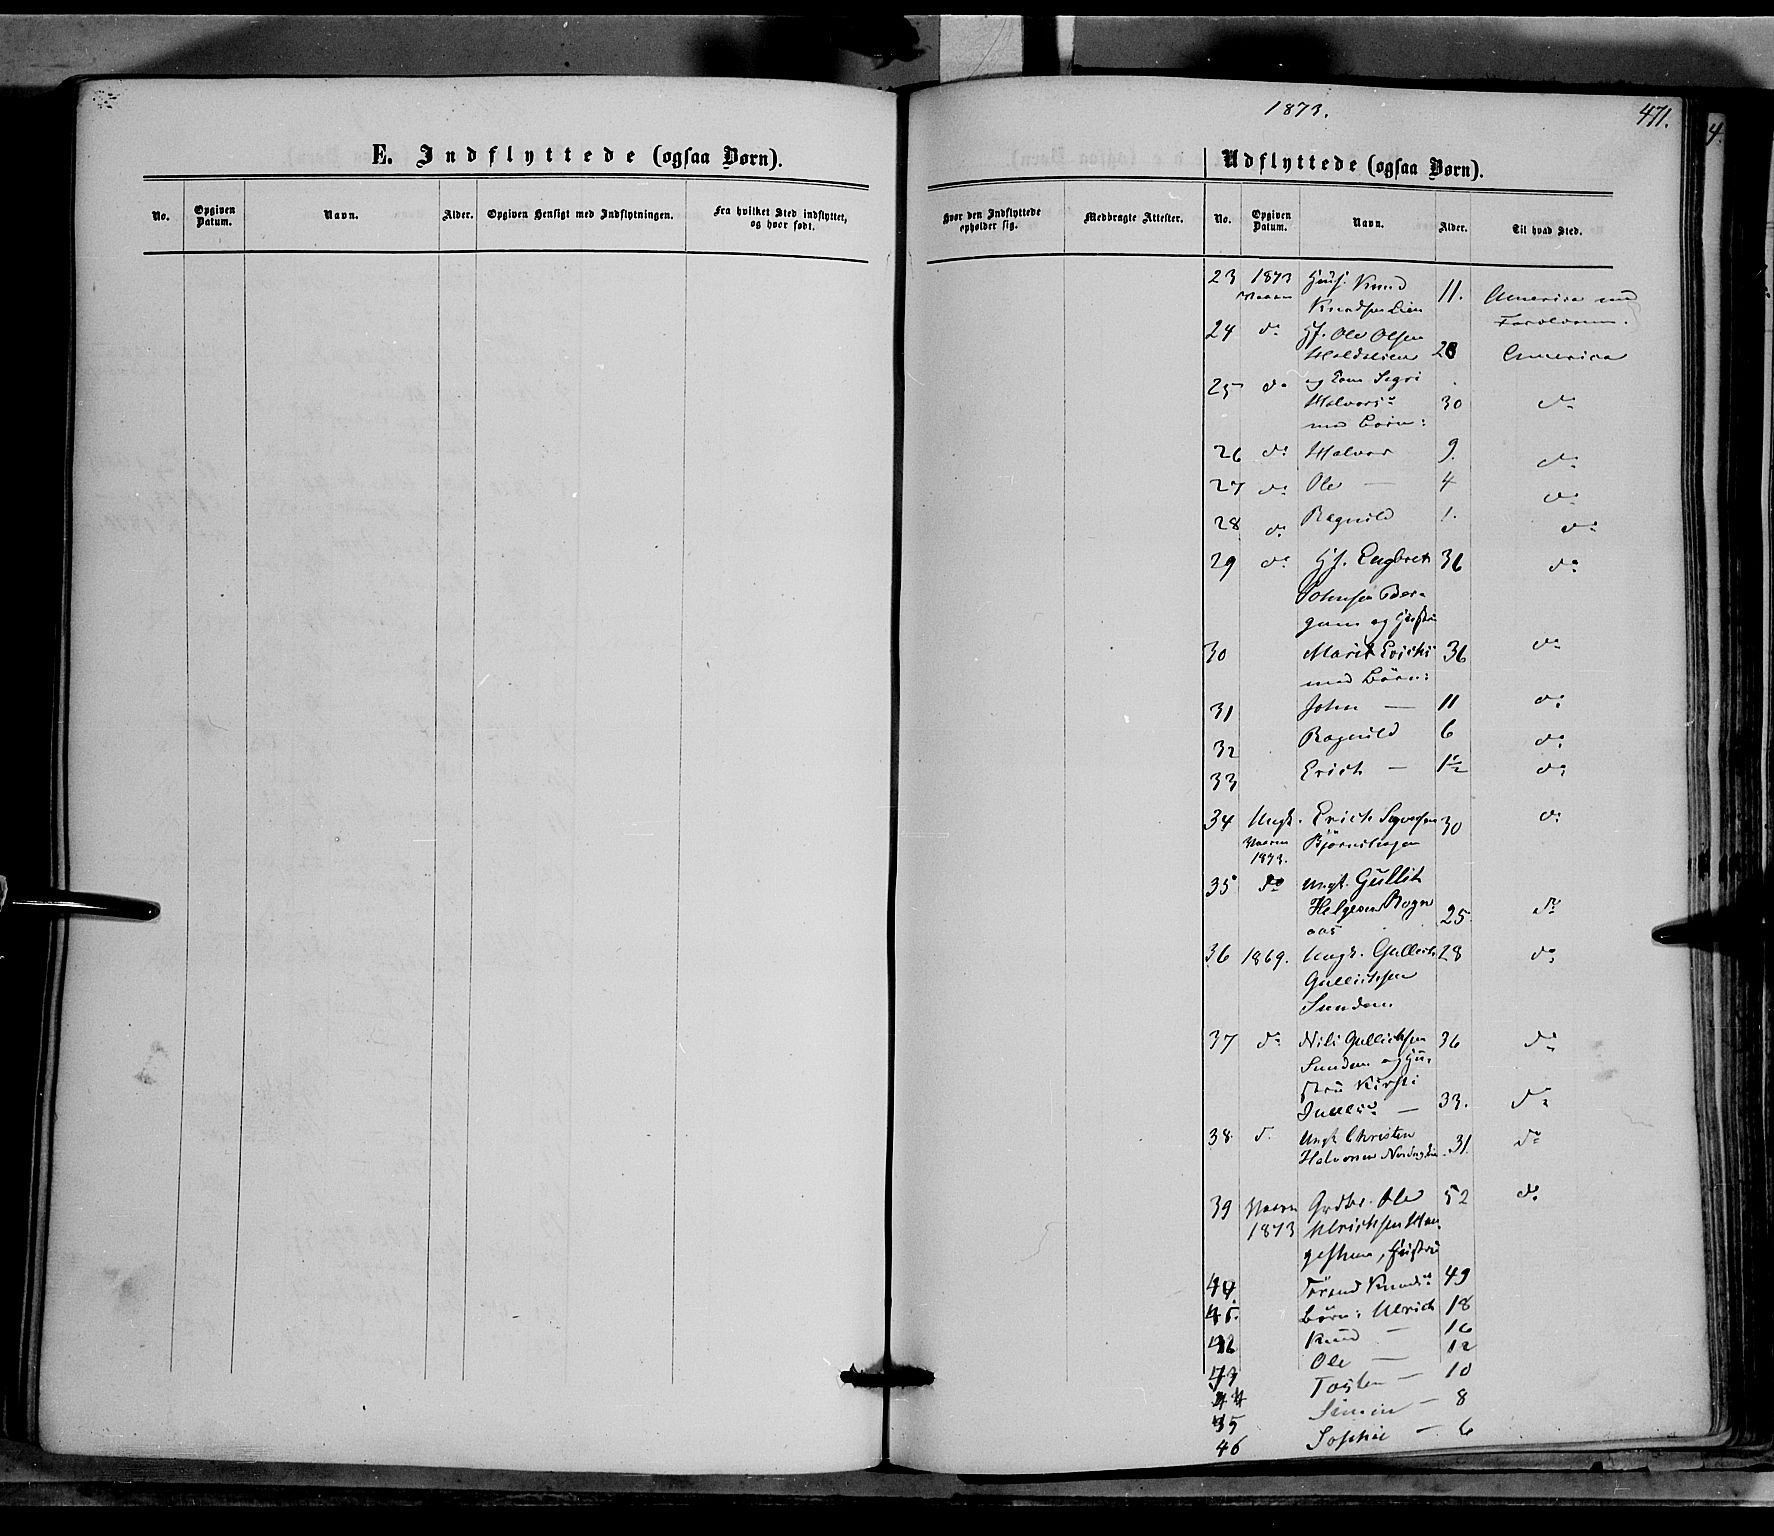 1873.
471.
E. Indflyttede (ogsaa Børn).
Udflyttede (ogsaa Børn).
No. Opgiven Datum. Navn. Alder. Opgiven Hensigt med Indflytningen. Fra hvilket Sted indflyttet, og hvor født.
Hvor den Indflyttede opholder sig. Medbragte Attester. No. Opgiven Datum. Navn. Alder. Til hvad Sted.
23 1873 Knud 11. America med
Vaaren Knudsen Lien Forældrene.
24 do Hf. Ole Olsen
28 America
25 do og Kone Sigri
Halvorsdr 30 do
med Børn:
26 do Halvor 9. do
27 do Ole — 4 do
28 do Ragnild 1. do
29 do Hf. Engbret 36 do
Johnsen Ber-
gum og Hustru
30 Marit Erichs 36 do
med Børn:
31 John — 11 do
32 Ragnild 6 do
33 Erich — 1½ do
34 Ungk. Erich 30 do
Vaaren Bjørnehagen
1873.
35 do Ungk. Gullik
Helgesen Rogn 25 do
aas
36 1869. Ungk. Gullich 28 do
Gullichsen
Sundem
37 do Nils Gullichsen 36 do
Sundem og Hu-
stru Kirsti
33. do
38 d. Ungk Christen
Halvorsen 31 do
39 Vaaren Grdbr. Ole 52 do
1873 Ulrichsen Hau
gestuen, Hustru
40. Torand Knudsd 49
45. Børn: Ulrich 18
Knud — 16
Ole — 12
Tosten — 10
44 Simen — 8
45 Sophie — 6
46